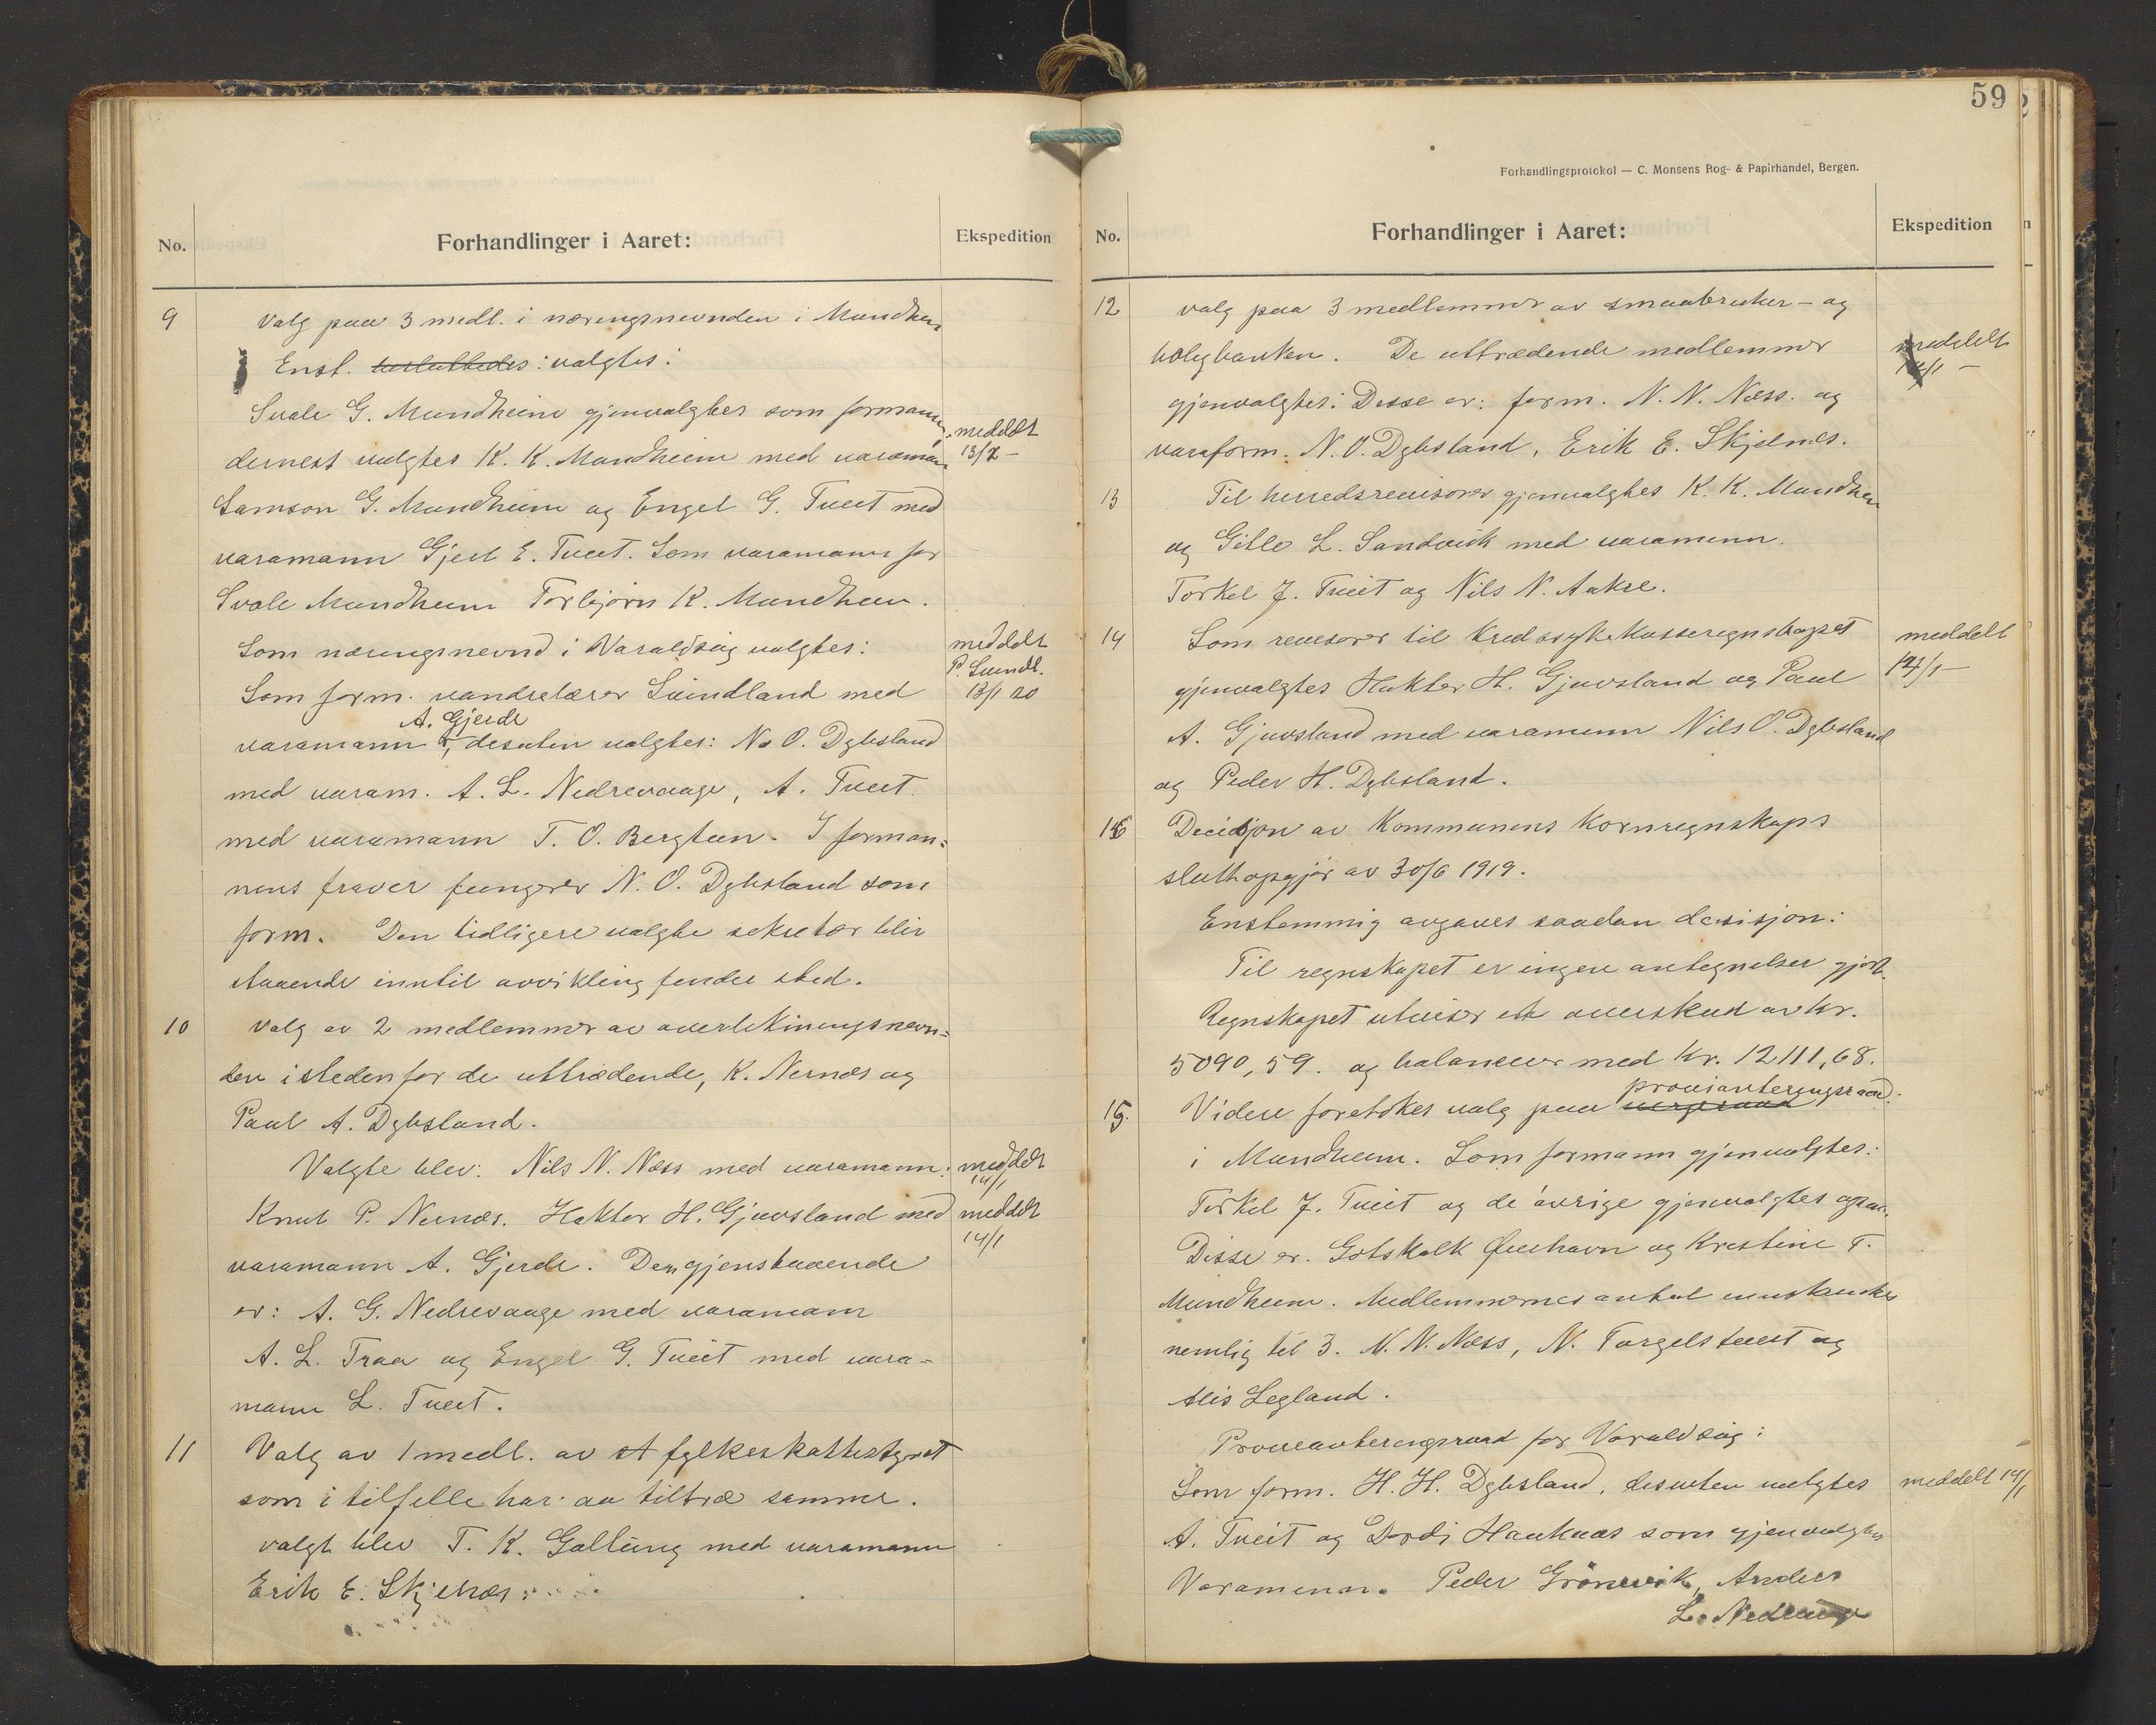 No.
Forhandlinger i Aaret:
Ekspedition
9 Valg paa 3 medl. i næringsnevnden i Mundheim
Enst. besluttedes: valgtes:
Svale G. Mundheim gjenvalgtes som formann,
meddelt
dernest valgtes K. K. Mundheim med varamann
13/1 -
Samson G. Mundheim og Engel G. Tveit med
varamann Gjert E. Tveit. Som varamann for
Svale Mundheim Torbjørn K. Mundheim.
Som næringsnevnd i Varaldsøy valgtes:
meddelt
P. Svindl.
Som form. vandrelærer Svindland med
13/1 20
A. Gjerde
varamann, desuten valgtes: N. O. Dybsland
med varam. A. L. Nedrevaage, A. Tveit
med varamann T. O. Bergtun. I forman=
nens fraver fungerer N. O. Dybsland som
form. Den tidligere valgte sekretær blir
staaende inntil avvikling finder sted.
10 Valg av 2 medlemmer av overlikningsnevn=
den istedenfor de uttrædende, K. Nernes og
Paul A. Dybsland.
Valgte blev: Nils N. Næss med varamann:
meddelt
14/1
Knut P. Nernæs. Haktor H. Gjuvsland med
meddelt
14/1
varamann A. Gjerde. Den gjenstaaende
er: A. G. Nedrevaage med varamann
A. L. Traa og Engel G. Tveit med vara=
mann L. Tveit.
11 Valg av 1 medl. av st fylkeskattestyret
som i tilfelle har aa tiltræ samme.
valgt blev T. K. Galtung med varamann
Erik E. Skjelnæs.
59
Forhandlingsprotokol — C. Monsens Bog- & Papirhandel, Bergen.
No.
Forhandlinger i Aaret:
Ekspedition
12 valg paa 3 medlemmer av smaabruker- og
boligbanken. De uttrædende medlemmer
meddelt
14/1 -
gjenvalgtes: Disse er: form. N. N. Næss. og
varaform. N. O. Dybsland, Erik E. Skjelnes.
13 Til herredsrevisorer gjenvalgtes K. K. Mundheim
og Gitle L. Sandvik med varamenn.
Torkel J. Tveit og Nils N. Aakre.
14 Som revisorer til Kredssykekasseregnskapet
meddelt
14/1 -
gjenvalgtes Haktor H. Gjuvsland og Paul
A. Gjuvsland med varamenn Nils O. Dybsland
og Peder H. Dybsland.
16 Decisjon av Kommunens Kornregnskaps
sluttopgjør av 30/6 1919.
Enstemmig avgaves saadan desisjon:
Til regnskapet er ingen antegnelser gjort.
Regnskapet utviser ett overskud av kr.
5090,59. og balancerer med Kr. 12111,68.
provianteringsraad.
15. Videre foretokes valg paa vergeraad
i Mundheim. Som formann gjenvalgtes:
Torkel J. Tveit og de øvrige gjenvalgtes ogsaa.
Disse er. Gotskalk Øvrehavn og Kristine T.
Mundheim. Medlemmernes antal innskrenkes
nemlig til 3. N. N. Næss, N. Torgelstveit og
Alis Legland.
Provianteringsraad for Varaldsøy:
Som form. H. H. Dybsland, desuten valgtes
meddelt 14/1
A. Tveit og Dordi Hauknæs som gjenvalgtes
Varamenn. Peder Grønnvik, Anders
L. Nedrevaage